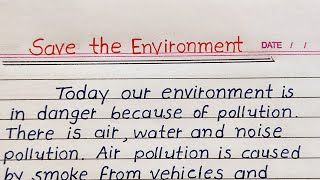 Save the Environment DATE / /
Today our environment is
in danger because of pollution.
There is air, water and noise
pollution. Air pollution is caused
by smoke from vehicles and